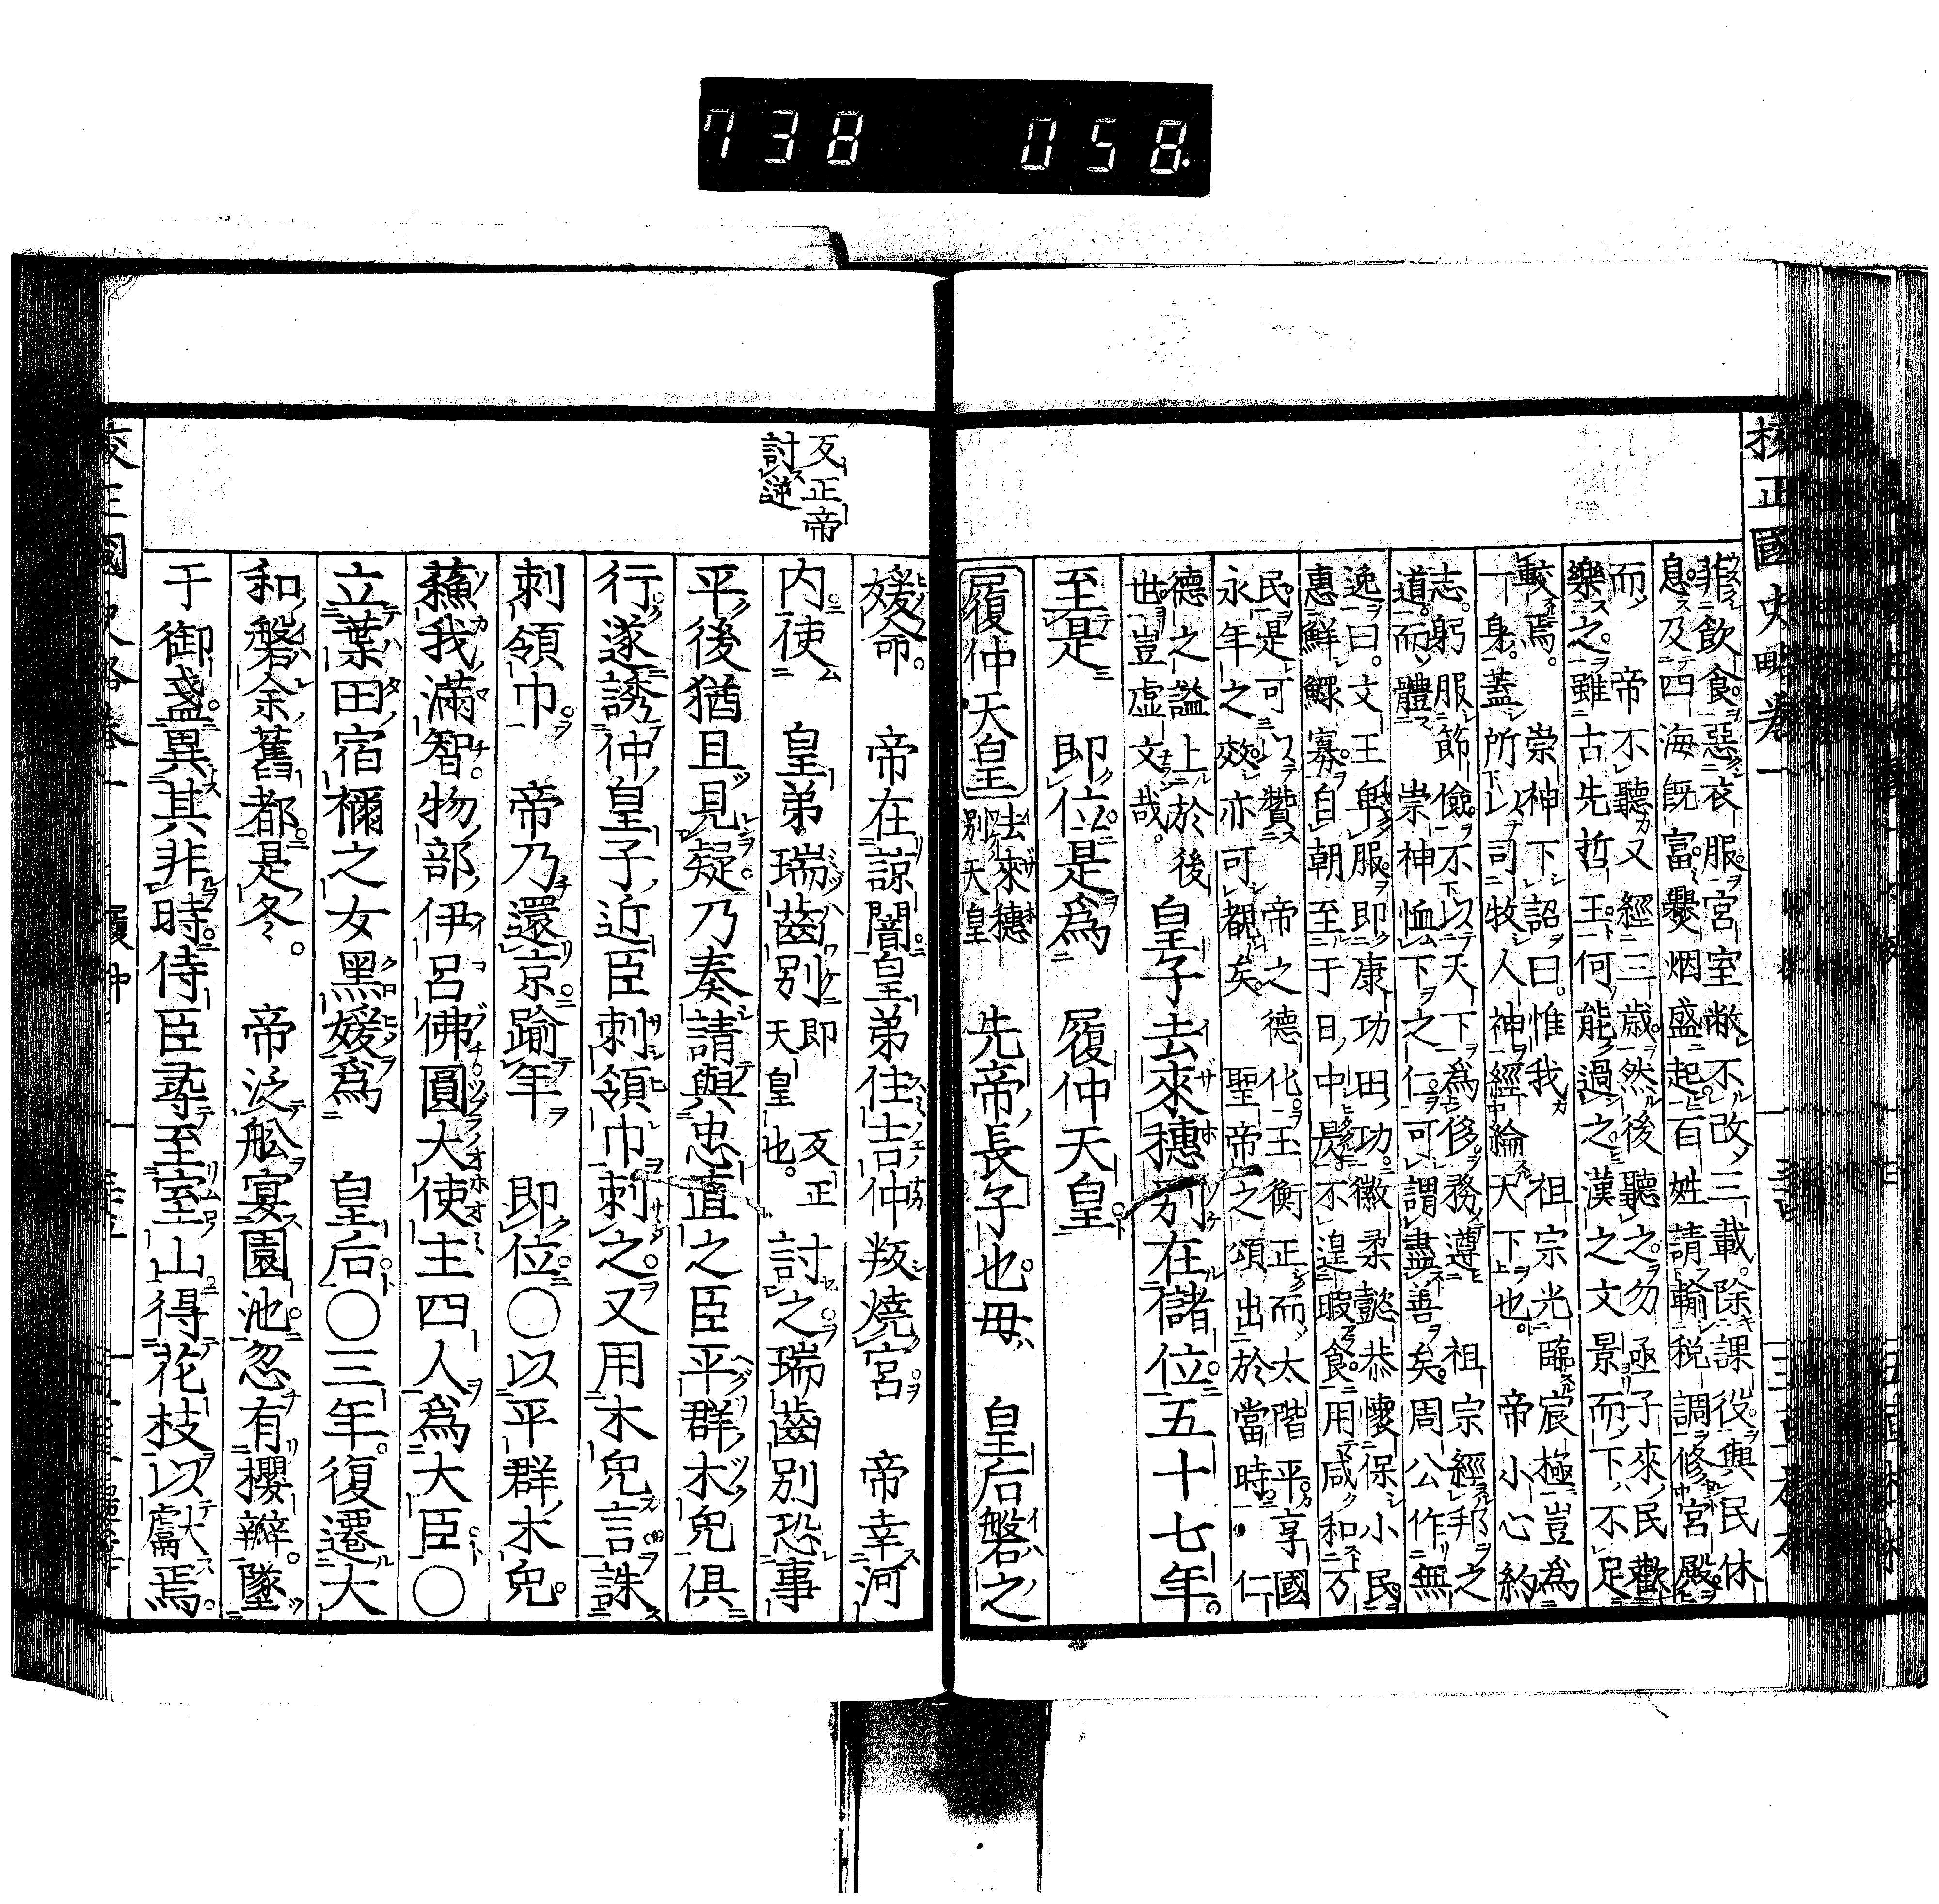 738 058
挍正國史略卷一
菲飲食。惡衣服。宮室敝不改。三載。除課役。與民休
息。及四海既富。爨烟盛起。百姓請輸税調。修宮殿。
而 帝不聽。又經三歳。然後聽之。勿亟子來。民歡
樂之。雖古先哲王。何能過之。漢之文景而下。不足
較焉。 崇神下詔曰。惟我 祖宗光臨宸極。豈爲
一身。蓋所以司牧人神。經綸天下也。 帝小心約
志。躬服節儉。不以天下為侈。務遵 祖宗經邦之
道。而體 崇神恤下之仁。可謂盡善矣。周公作無
逸曰。文王卑服。即康功田功。徽柔懿恭。懷保小民。
惠鮮鰥寡。自朝至于日中昃。不遑暇食。用咸和万
民。是可以贊 帝之德化。玉衡正而太階平。享國
永年之效。亦可覩矣。 聖帝之頌。出於當時。仁
德之謚。上於後
世。豈虚文哉。
皇子去來穗別在儲位。五十七年。
至是 即位。是爲 履仲天皇。
履仲天皇 去來穗別天皇 先帝長子也。母 皇后磐之
反正帝討逆
媛命。 帝在諒闇。皇弟住吉仲叛。燒宮。 帝幸河
内。使 皇弟瑞齒別 即 反正天皇也。 討之。瑞齒別恐事
平後猶且見疑。乃奏請與忠直之臣平群木兔俱
行。遂誘仲皇子近臣刺領巾刺之。又用木兔言。誅
刺領巾。 帝乃還京。踰年 即位。○以平群木兔。
蘓我滿智。物部伊呂佛。圓大使主四人爲大臣。○
立葉田宿禰之女黑媛爲 皇后。○三年。復遷大
和磐余舊都。是冬。 帝泛舩宴園池。忽有櫻瓣。墜
于御盞。異其非時。侍臣尋至室山。得花枝以獻。大焉。